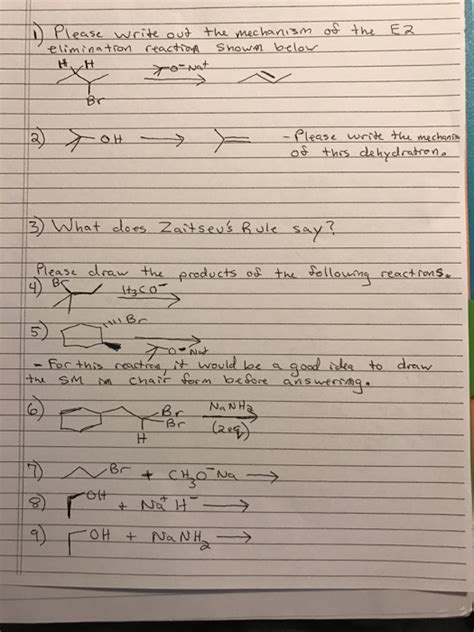 1) Please write out the mechanism of the E2
elimination reaction shown below
H H
O⁻Na⁺
Br
2) OH → - Please write the mechanism
of this dehydration.
3) What does Zaitsev's Rule say?
Please draw the products of the following reactions.
4) Br H₃CO⁻
5) Br
O⁻Na⁺
- For this reaction, it would be a good idea to draw
the SM in chair form before answering.
6) Br NaNH₂
Br (2eq)
H
7) Br + CH₃O⁻Na →
8) OH + Na⁺H⁻ →
9) OH + NaNH₂ →